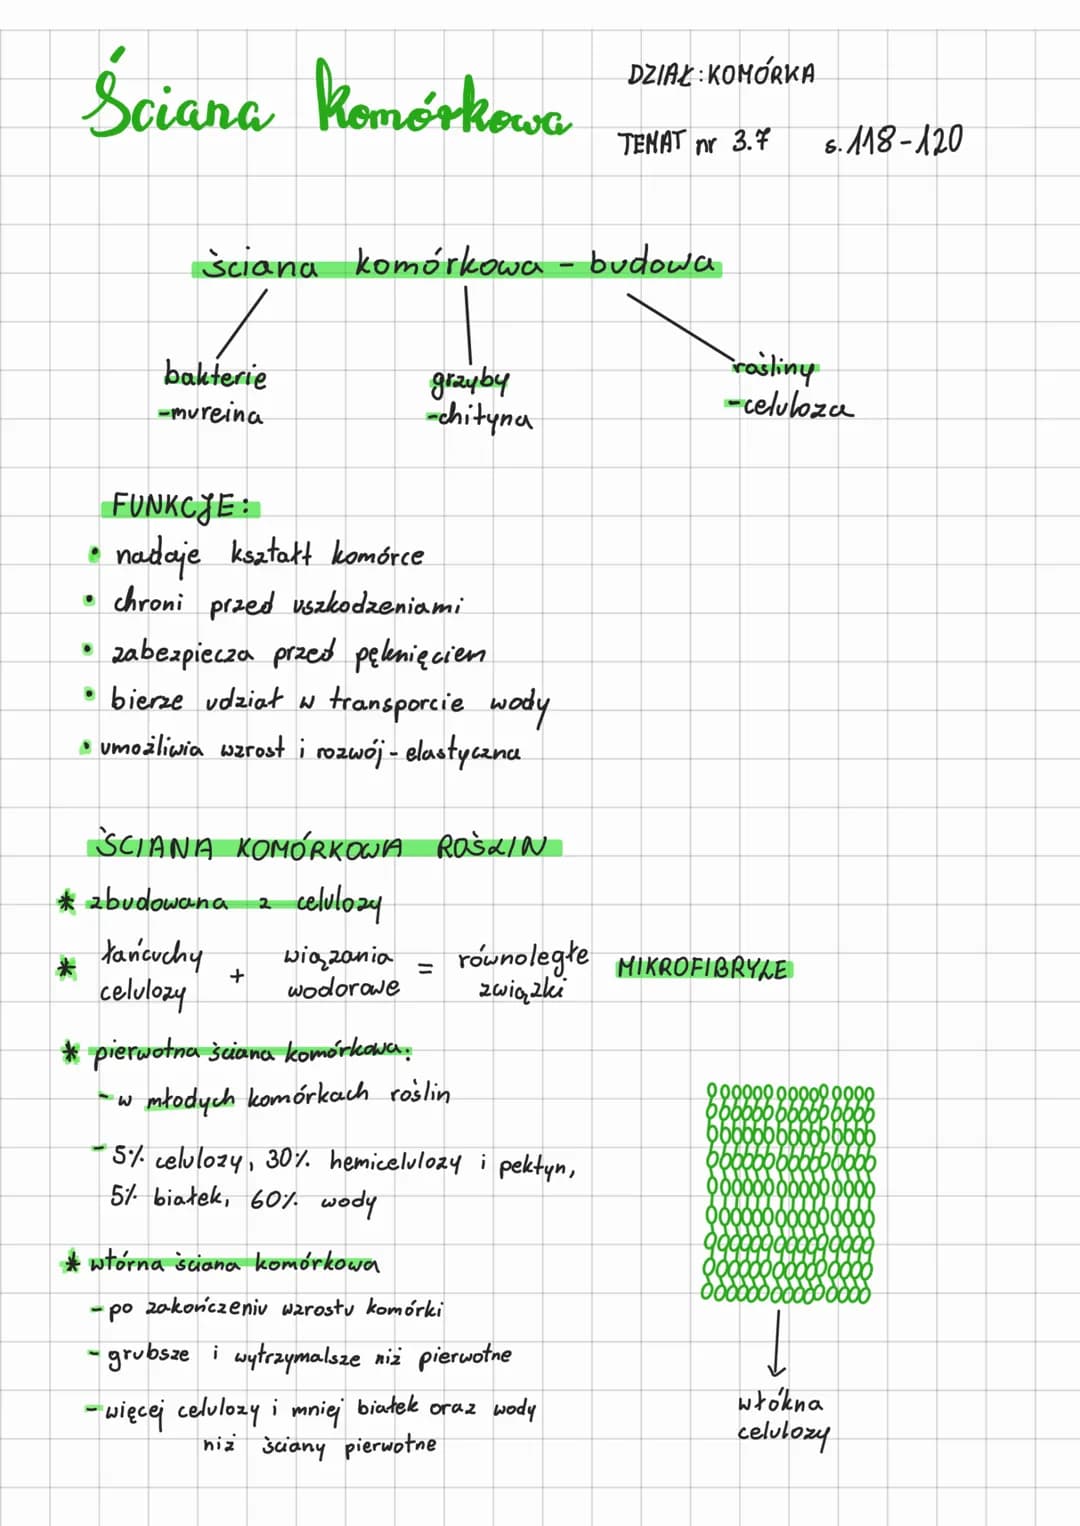 Ściana komórkowa
DZIAŁ: KOMÓRKA
TEMAT nr 3.7 s. 118-120
ściana komórkowa - budowa
bakterie
-mureina
grzyby
-chityna
rośliny
-celuloza
FUNKCJE:
• nadaje kształt komórce
• chroni przed uszkodzeniami
• zabezpiecza przed pęknięciem
• bierze udział w transporcie wody
• umożliwia wzrost i rozwój - elastyczna
ŚCIANA KOMÓRKOWA ROŚLIN
* zbudowana z celulozy
* łańcuchy celulozy + wiązania wodorowe = równoległe związki MIKROFIBRYLE
* pierwotna ściana komórkowa:
- w młodych komórkach roślin
- 5% celulozy, 30% hemicelulozy i pektyn,
5% białek, 60% wody
* wtórna ściana komórkowa
- po zakończeniu wzrostu komórki
- grubsze i wytrzymalsze niż pierwotne
- więcej celulozy i mniej białek oraz wody
niż ściany pierwotne
włókna
celulozy